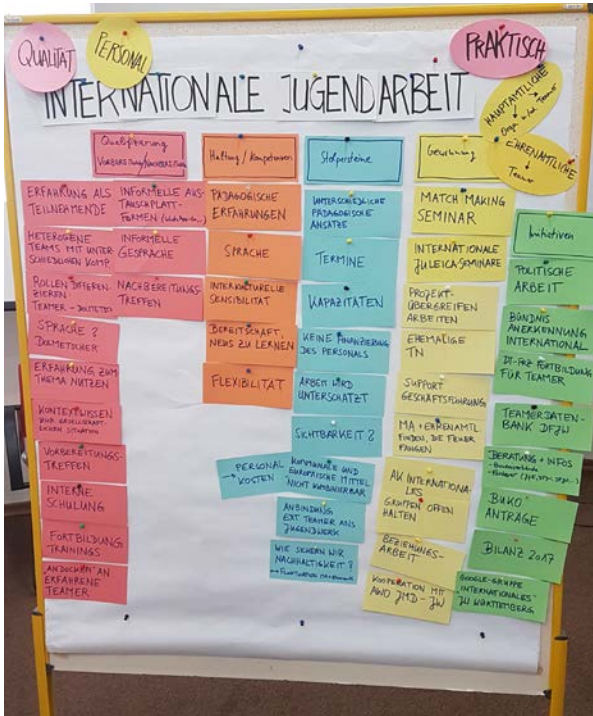 QUALITÄT
PERSONAL
PRAKTISCH
INTERNATIONALE JUGENDARBEIT
HAUPTAMTLICHE
EHRENAMTLICHE
→ Teamer
Qualifizierung
VORBEREITUNG/NACHBEREITUNG
ERFAHRUNG ALS
TEILNEHMENDE
HETEROGENE
TEAMS MIT UNTER
SCHIEDLICHEN KOMP.
ROLLEN DIFFEREN-
ZIEREN
TEAMER - DOLMETSCHER
SPRACHE?
DOLMETSCHER
ERFAHRUNG ZUM
THEMA NUTZEN
KONTEXTWISSEN
ZUR GESELLSCHAFT-
LICHEN SITUATION
VORBEREITUNGS-
TREFFEN
INTERNE
SCHULUNG
FORTBILDUNG
TRAININGS
"ANDOCKEN" AN
ERFAHRENE
TEAMER
INFORMELLE AUS-
TAUSCHPLATT-
FORMEN
INFORMELLE
GESPRÄCHE
NACHBEREITUNGS-
TREFFEN
Haltung/Kompetenzen
PÄDAGOGISCHE
ERFAHRUNGEN
SPRACHE
INTERKULTURELLE
SENSIBILITÄT
BEREITSCHAFT,
NEUS ZU LERNEN
FLEXIBILITÄT
Stolpersteine
UNTERSCHIEDLICHE
PÄDAGOGISCHE
ANSÄTZE
TERMINE
KAPAZITÄTEN
KEINE FINANZIERUNG
DES PERSONALS
ARBEIT WIRD
UNTERSCHÄTZT
SICHTBARKEIT?
→ PERSONAL
KOSTEN
KOMMUNALE UND
EUROPÄISCHE MITTEL
NICHT KOMBINIERBAR
ANBINDUNG
EXT. TEAMER ANS
JUGENDWERK
WIE SICHERN WIR
NACHHALTIGKEIT?
Gewinnung
MATCH MAKING
SEMINAR
INTERNATIONALE
JULEICA-SEMINARE
PROJEKT-
ÜBERGREIFEN
ARBEITEN
EHEMALIGE
TN
SUPPORT
GESCHÄFTSFÜHRUNG
MA + EHRENAMTL
FINDEN, DIE FEUER
FANGEN
AK INTERNATIONA-
LES
GRUPPEN OFFEN
HALTEN
BEZIEHUNGS-
ARBEIT
KOOPERATION MIT
AWO JMD - JW
Initiativen
POLITISCHE
ARBEIT
BÜNDNIS
ANERKENNUNG
INTERNATIONAL
DT-FRZ FORTBILDUNG
FÜR TEAMER
TEAMERDATEN-
BANK DFJW
BERATUNG + INFOS
BUKO
ANTRÄGE
BILANZ 2017
GOOGLE-GRUPPE
"INTERNATIONALES"
JW WÜRTTEMBERG